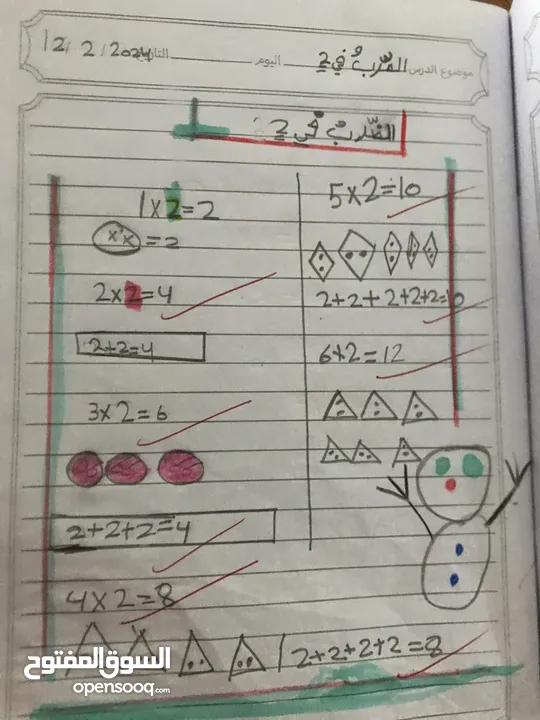 موضوع الدرس الضّربُ في 2 اليوم التاريخ 12/2/2024
الضّربُ في 2
1x2=2
x'x =2
2x2=4
2+2=4
3x2=6
2+2+2=4
4x2=8
2+2+2+2=8
5x2=10
2+2+2+2+2=10
6x2=12
السوق المفتوح
opensooq.com